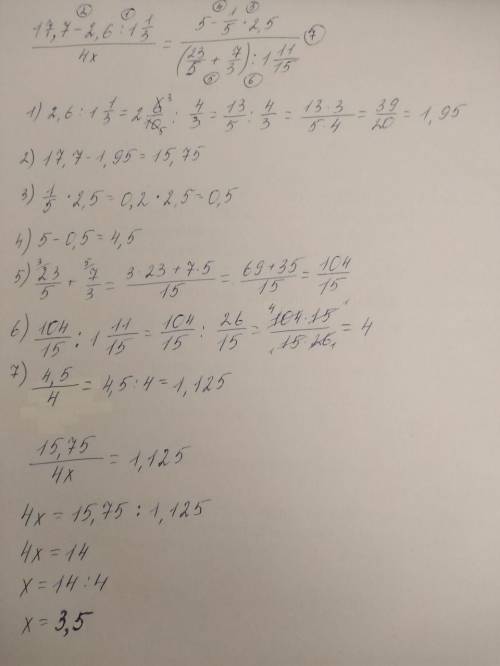 ② ① ④ ③
(17,7 - 2,6 : 1 1/3) / 4x = (5 - 1/5 · 2,5) / ((23/5 + 7/3) : 1 11/15) ⑦
⑤ ⑥
1) 2,6 : 1 1/3 = 2 6³/10₅ : 4/3 = 13/5 : 4/3 = (13 · 3)/(5 · 4) = 39/20 = 1,95
2) 17,7 - 1,95 = 15,75
3) 1/5 · 2,5 = 0,2 · 2,5 = 0,5
4) 5 - 0,5 = 4,5
5) ³23/5 + ⁵7/3 = (3 · 23 + 7 · 5)/15 = (69 + 35)/15 = 104/15
6) 104/15 : 1 11/15 = 104/15 : 26/15 = (⁴104 · 15¹)/(₁15 · 26₁) = 4
7) 4,5/4 = 4,5 : 4 = 1,125
15,75/4x = 1,125
4x = 15,75 : 1,125
4x = 14
x = 14 : 4
x = 3,5